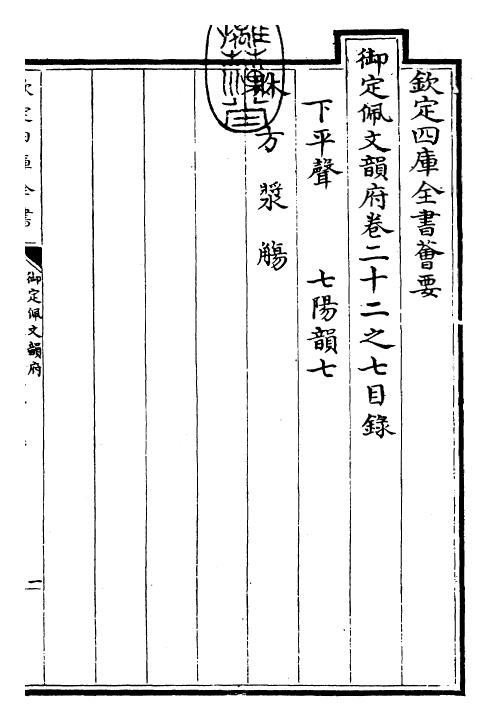 欽定四庫全書薈要
御定佩文韻府卷二十二之七目錄
下平聲　七陽韻七
方 漿 觴
御定佩文韻府